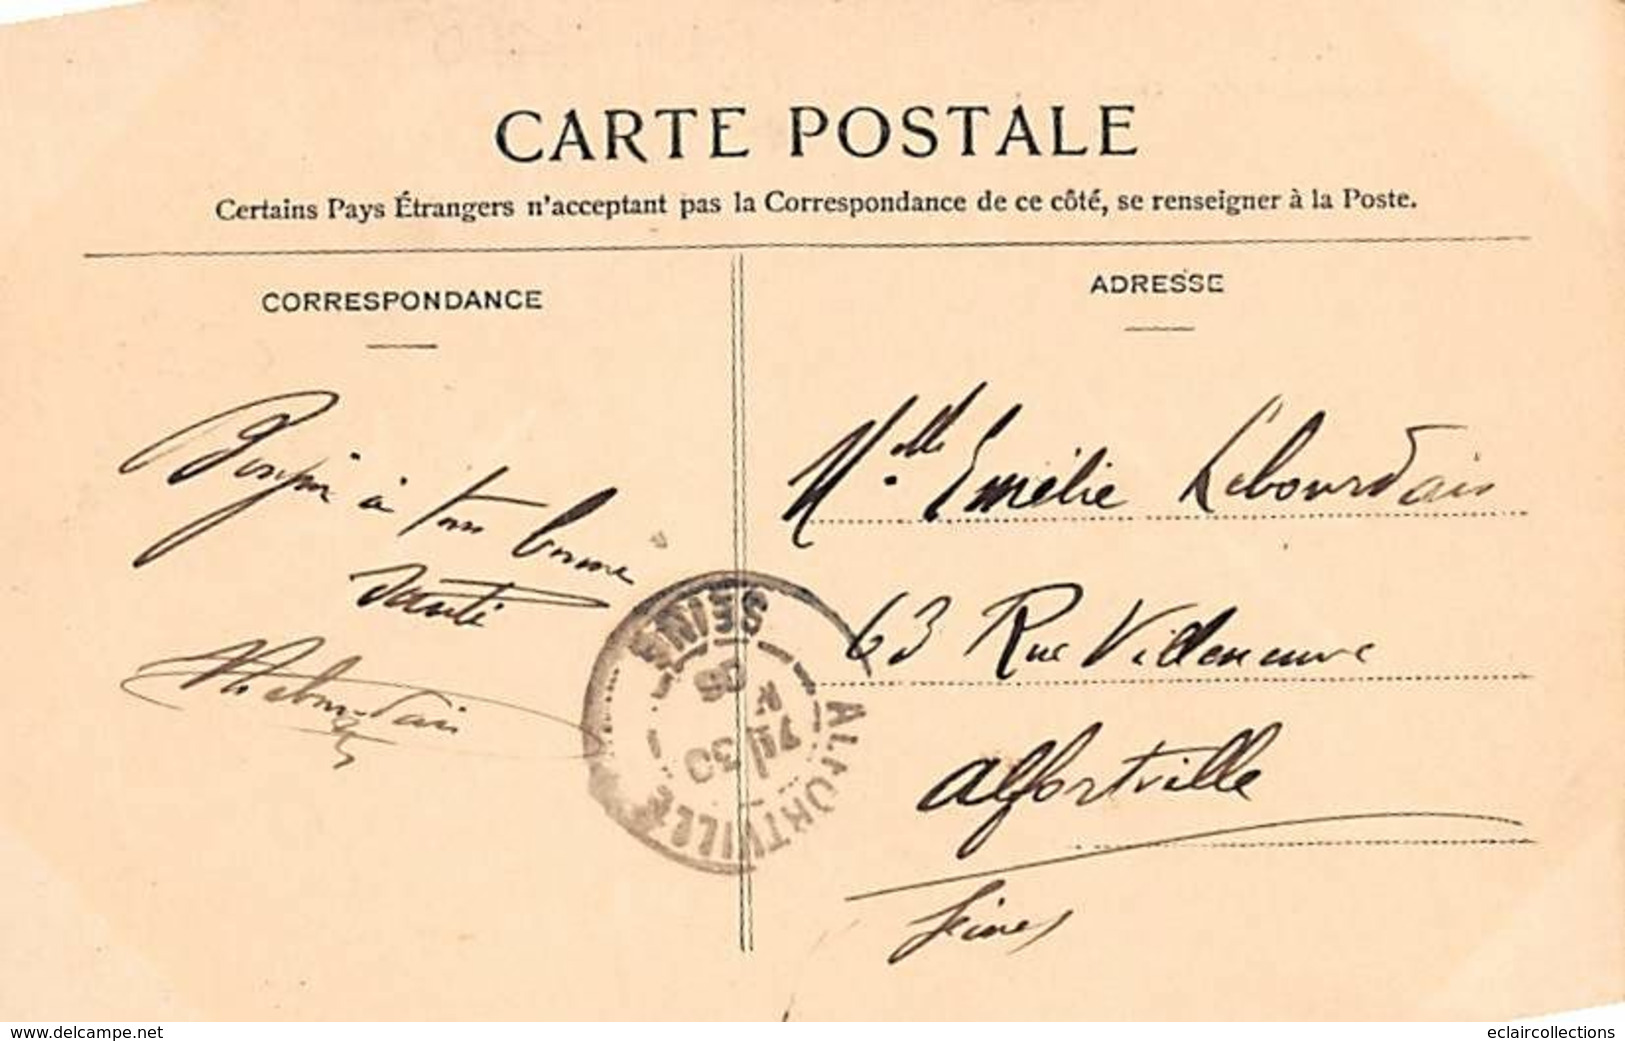 CARTE POSTALE
Certains Pays Étrangers n'acceptant pas la Correspondance de ce côté, se renseigner à la Poste.
CORRESPONDANCE
ADRESSE
Bonjour à tous bonne
santé
Lebourdais
Melle Emélie Lebourdais
63 Rue Villeneuve
Alfortville
Seine
ALFORTVILLE
SEINE
www.delcampe.net
eclaircollections